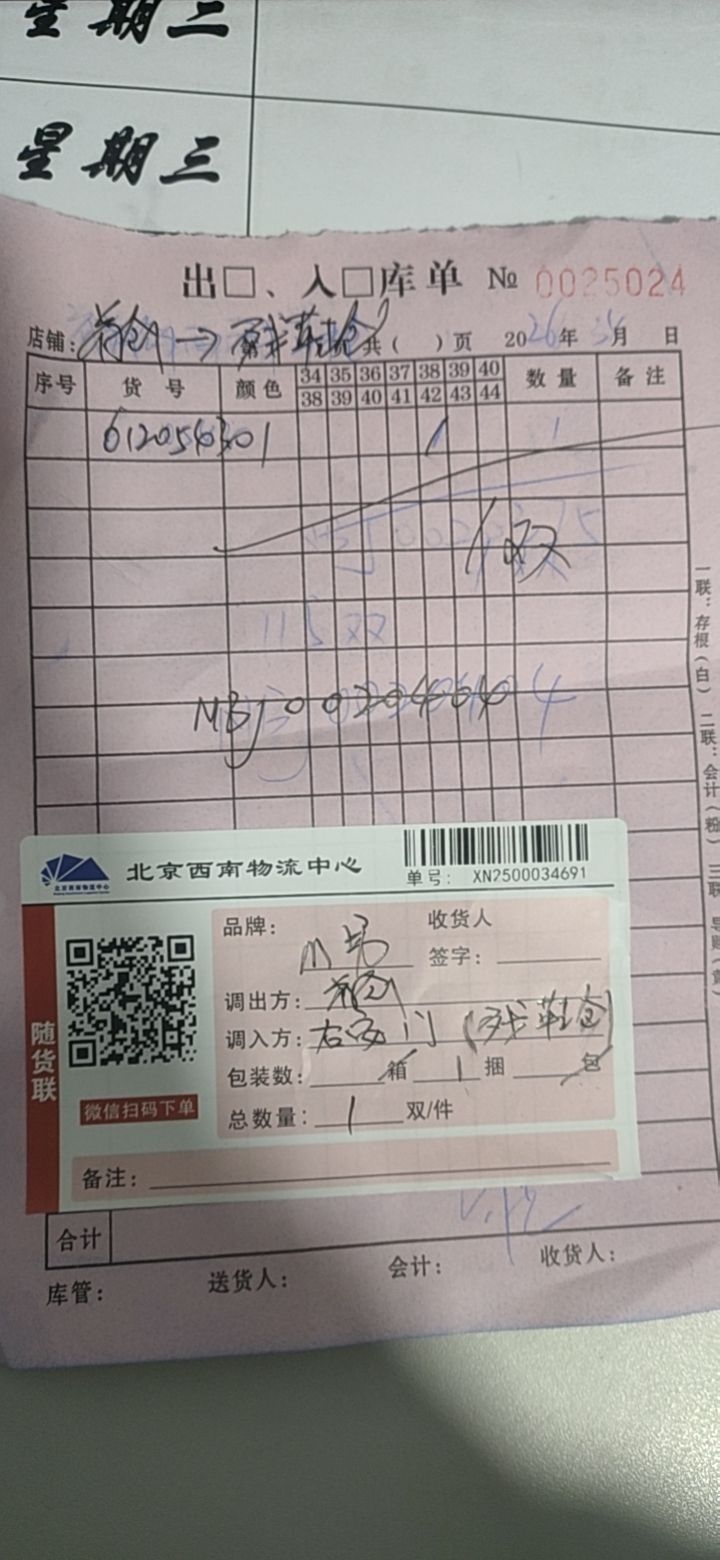 星期二
星期三
出□、入□库单 № 0025024
店铺: 共( )页 2026年 月 日
序号 货号 颜色 34 35 36 37 38 39 40 数量 备注
38 39 40 41 42 43 44
1 1
1双
11 双
MBJ00204
一联：存根(白) 二联：会计(粉) 三联
北京西南物流中心
北京西南物流中心
单号: XN2500034691
随货联
微信扫码下单
品牌: 收货人
签字:
调出方:
调入方: 右安门(残鞋仓)
包装数: 箱 1 捆 包
总数量: 1 双/件
备注:
合计
库管: 送货人: 会计: 收货人: